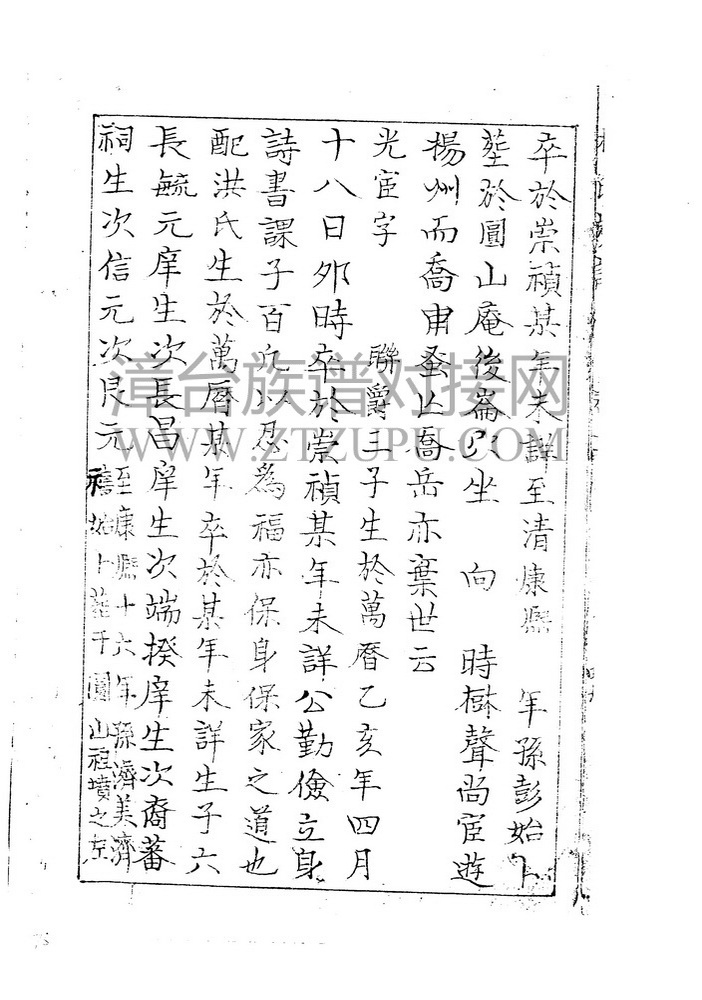 卒於崇禎某年未詳至清康熙 年孫彭始卜
塟於圓山庵後崙穴坐 向 時樹聲尚宦遊
楊州而喬甫蚤亡喬岳亦棄世云
光宦字 聯爵三子生於萬曆乙亥年四月
十八日夘時卒於崇禎某年未詳公勤儉立身
詩書課子百凢以忍為福亦保身保家之道也
配洪氏生於萬曆某年卒於某年未詳生子六
長毓元庠生次長昌庠生次端揆庠生次裔蕃
祠生次信元次良元
至康熙十六年孫濟美濟
禧始卜塟于圓山祖墳之左
漳台族谱对接网
WWW.ZTZUPU.COM